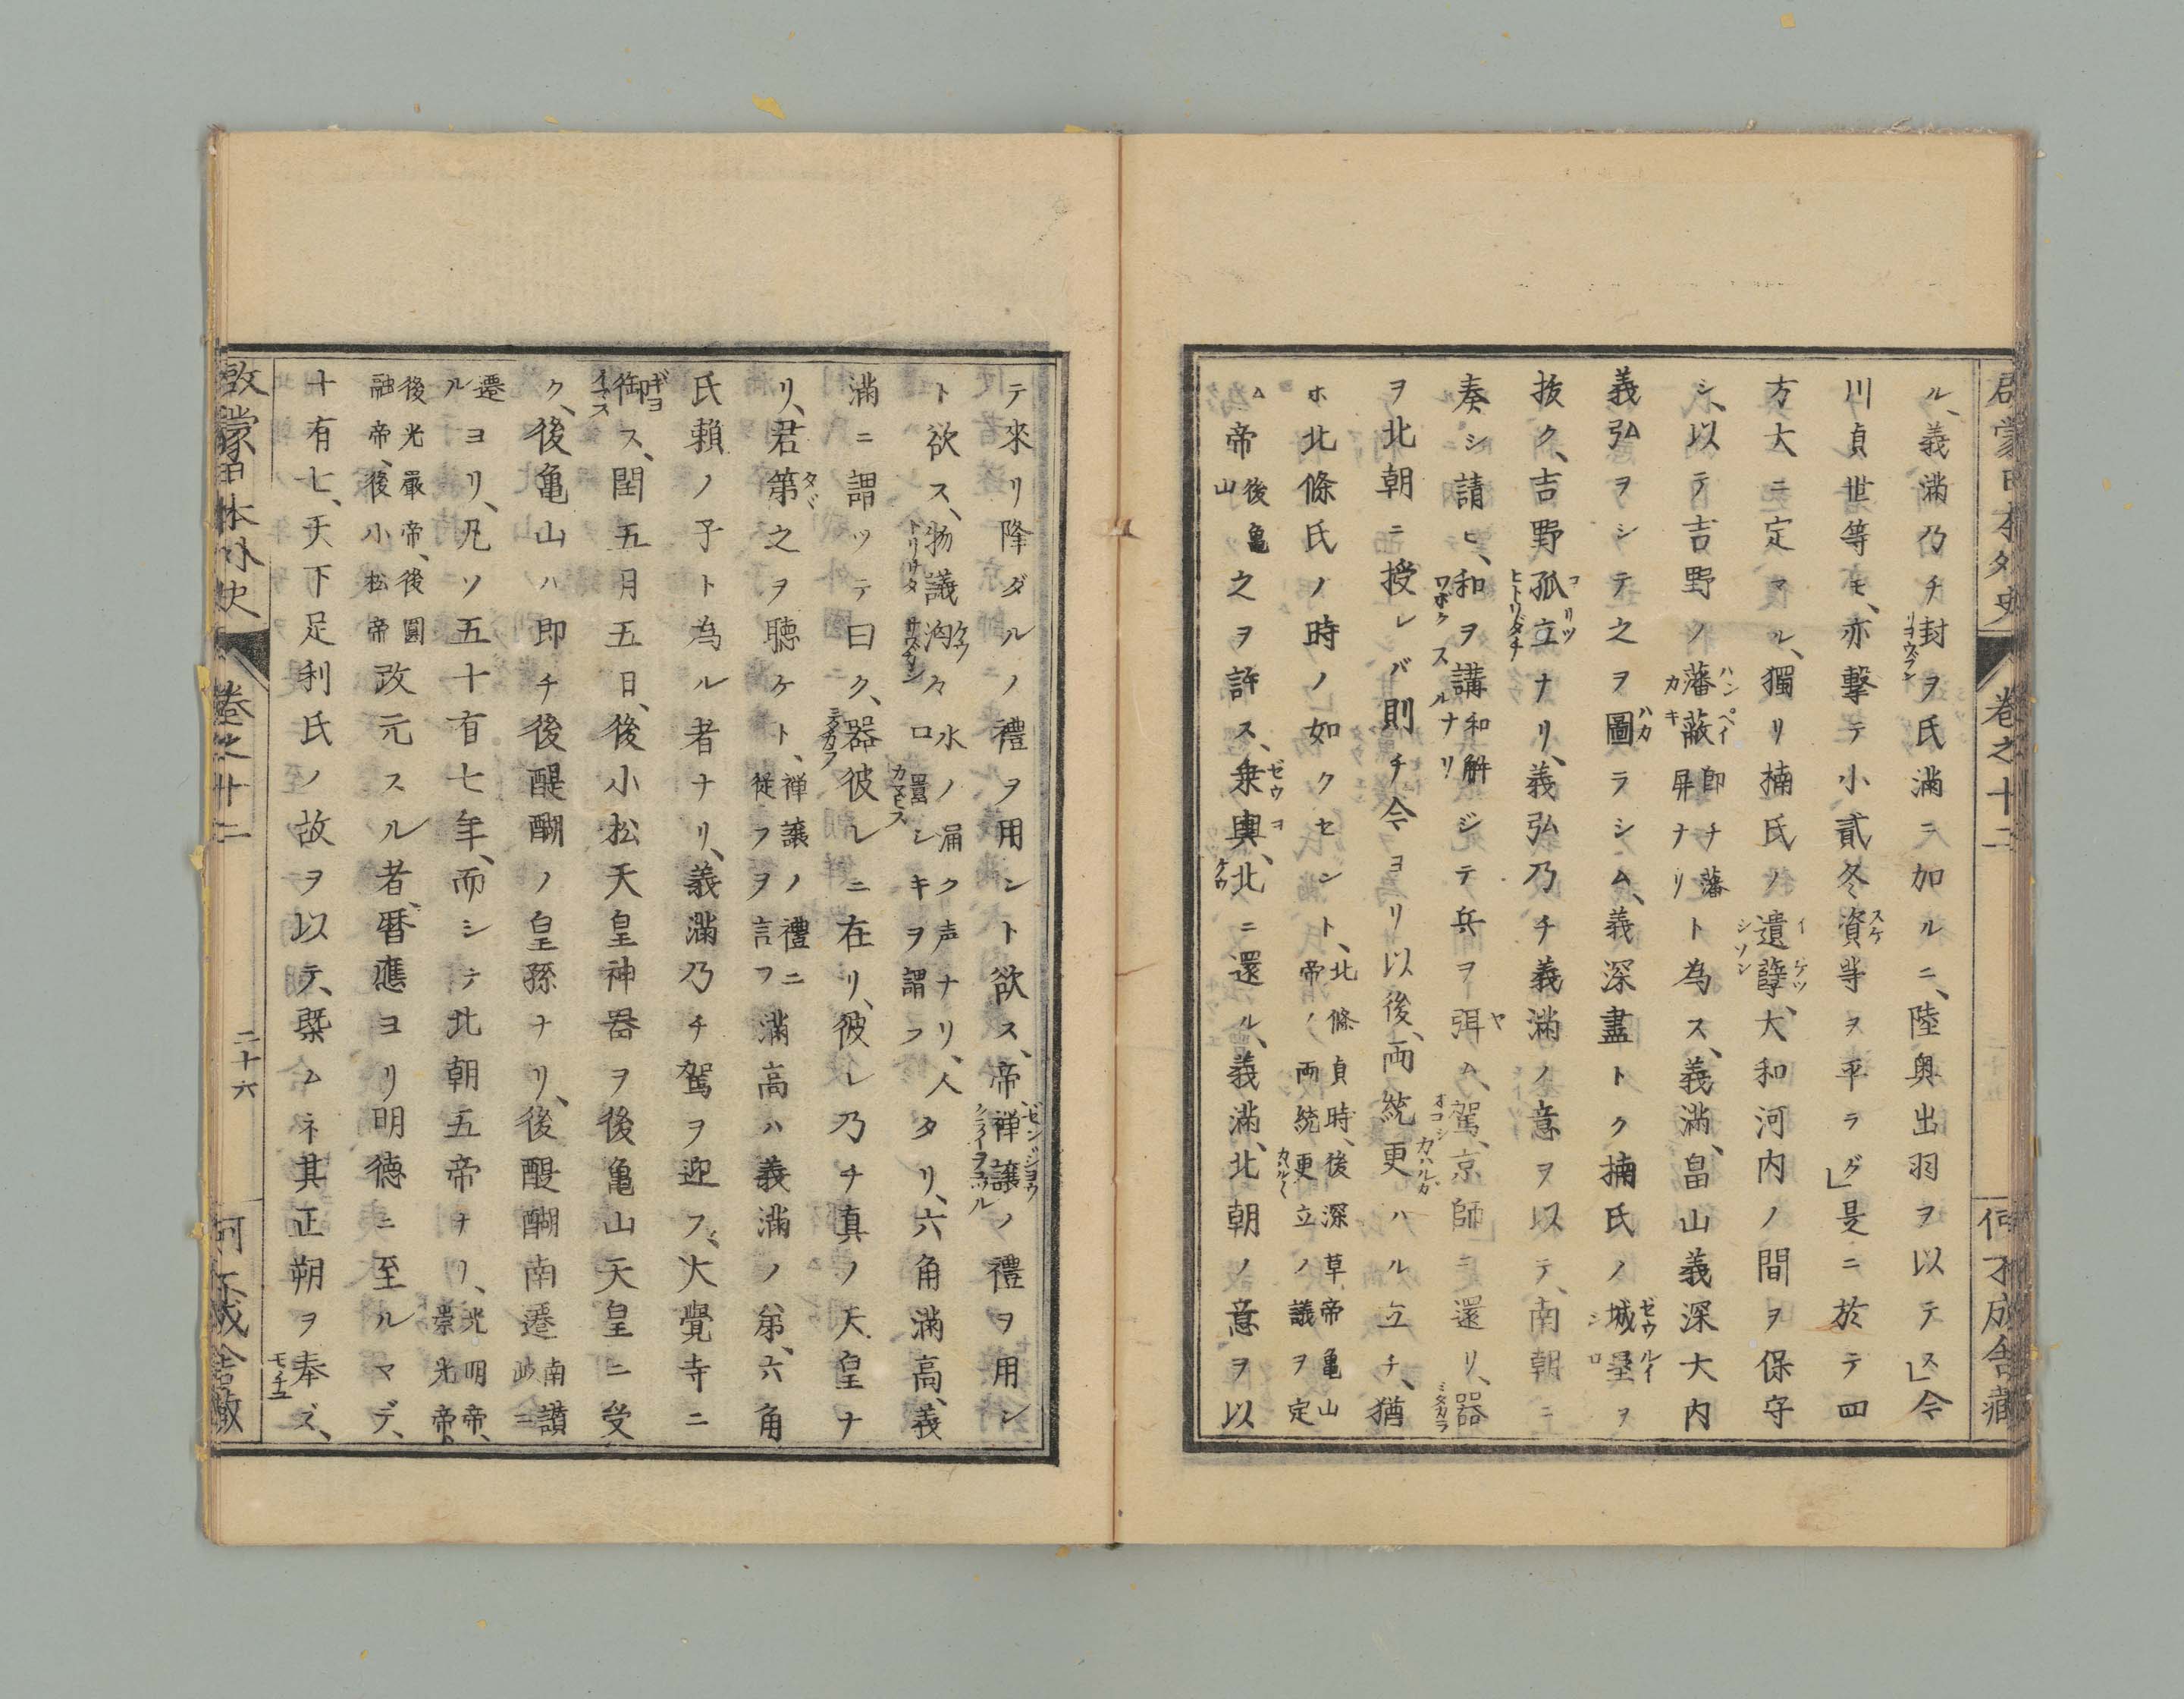 啓蒙日本外史 卷之十二 何不成舎藏
ル、義滿乃チ封ヲ氏滿ニ加ルニ、陸奥出羽ヲ以テス」今
川貞世等モ、亦撃テ小貳冬資等ヲ平ラグ」是ニ於テ四
方大ニ定マル、獨リ楠氏ノ遺孽、大和河内ノ間ヲ保守
シ、以テ吉野ノ藩蔽即チ藩屏ナリト為ス、義滿、畠山義深大内
義弘ヲシテ之ヲ圖ラシム、義深盡トク楠氏ノ城壘ヲ
抜ク、吉野孤立ナリ、義弘乃チ義滿ノ意ヲ以テ、南朝ニ
奏シ請ヒ、和ヲ講和解スルナリジテ兵ヲ弭ム、駕、京師ニ還リ、器
ヲ北朝ニ授レバ則チ今ヨリ以後、両統更ハル立チ、猶
ホ北條氏ノ時ノ如クセント、北條貞時、後深草帝亀山帝ノ両統更立ノ議ヲ定
ム帝後亀山之ヲ許ス、乗輿、北ニ還ル、義滿、北朝ノ意ヲ以
テ來リ降ダルノ禮ヲ用ント欲ス、帝、禅讓ノ禮ヲ用ン
ト欲ス、物議洶々水ノ涌ク声ナリ、人口囂シキヲ謂フタリ、六角滿高、義
滿ニ謂ッテ曰ク、器彼レニ在リ、彼レ乃チ真ノ天皇ナ
リ、君第之ヲ聴ケト、禅譲ノ禮ニ従フヲ言フ滿高ハ義滿ノ弟、六角
氏頼ノ子ト為ル者ナリ、義滿乃チ駕ヲ迎フ、大覺寺ニ
御ス、閏五月五日、後小松天皇神器ヲ後亀山天皇ニ受
ク、後亀山ハ即チ後醍醐ノ皇孫ナリ、後醍醐南遷南讃岐ニ
遷ルヨリ、凡ソ五十有七年、而シテ北朝五帝ナリ、光明帝、崇光帝、
後光嚴帝、後圓融帝、後小松帝改元スル者、暦應ヨリ明徳ニ至ルマデ、
十有七、天下足利氏ノ故ヲ以テ、槩ムネ其正朔ヲ奉ズ、
啓蒙日本外史 卷之十二 二十六 何不成舎藏